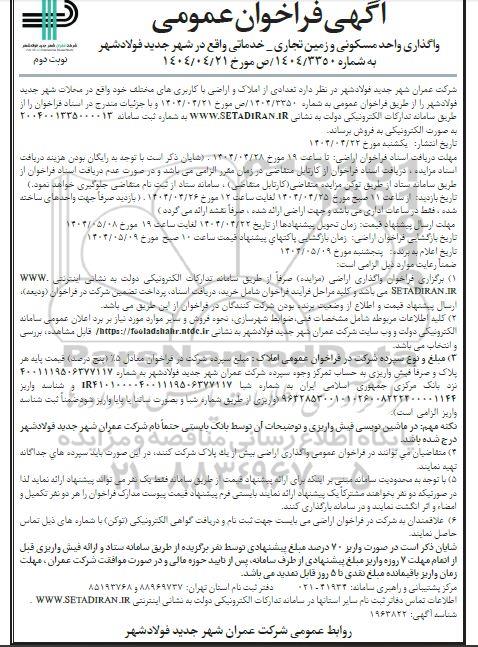 آگهی فراخوان عمومی
واگذاری واحد مسکونی و زمین تجاری _ خدماتی واقع در شهر جدید فولادشهر
به شماره ۱۴۰۴/۳۳۵۰/ص مورخ ۱۴۰۴/۰۴/۲۱
شرکت عمران شهر جدید فولادشهر
نوبت دوم
شرکت عمران شهر جدید فولادشهر در نظر دارد تعدادی از املاک و اراضی با کاربری های مختلف خود واقع در محلات شهر جدید
فولادشهر را از طریق فراخوان عمومی به شماره ۱۴۰۴/۳۳۵۰/ص مورخ ۱۴۰۴/۰۴/۲۱ و با جزئیات مندرج در اسناد فراخوان را از
طریق سامانه تدارکات الکترونیکی دولت به نشانی WWW.SETADIRAN.IR به شماره ثبت سامانه
به صورت الکترونیکی به فروش برساند.
تاریخ انتشار: یکشنبه مورخ ۱۴۰۴/۰۴/۲۲
مهلت دریافت اسناد فراخوان اراضی: تا ساعت ۱۹ مورخ ۱۴۰۴/۰۴/۲۸ . (شایان ذکر است با توجه به رایگان بودن هزینه دریافت
اسناد مزایده ، دریافت اسناد فراخوان از کارتابل متقاضی در زمان مقرر الزامی می باشد و در صورت عدم دریافت اسناد فراخوان از
طریق سامانه ستاد از طریق توکن مزایده متقاضی(کارتابل متقاضی) ، سامانه ستاد از ثبت نام متقاضی جلوگیری خواهد نمود.)
تاریخ بازدید: از ساعت ۱۱ صبح مورخ ۱۴۰۴/۰۴/۲۵ لغایت ساعت ۱۲ مورخ ۱۴۰۴/۰۴/۲۶ . ( بازدید صرفاً جهت واحدهای ساخته
شده ، فقط در ساعات اداری می باشد و جهت اراضی ارائه شده ، صرفاً نقشه ارائه می گردد )
مهلت ارسال پیشنهاد قیمت: زمان تحویل پیشنهادها از تاریخ ۱۴۰۴/۰۴/۲۲ لغایت ساعت ۱۹ مورخ ۱۴۰۴/۰۵/۰۸
تاریخ بازگشایی فراخوان اراضی: زمان بازگشایی پاکتهاي پیشنهاد قیمت ساعت ۱۰ صبح مورخ ۱۴۰۴/۰۵/۰۹
تاریخ اعلام به برنده: پنجشنبه مورخ ۱۴۰۴/۰۵/۰۹
ضمناً رعایت موارد ذیل الزامی است:
۱) برگزاری فراخوان واگذاری اراضی (مزایده) صرفاً از طریق سامانه تدارکات الکترونیکی دولت به نشانی اینترنتی WWW.
SETADIRAN.IR می باشد، و کلیه مراحل فرآیند فراخوان شامل خرید، دریافت اسناد، پرداخت تضمین شرکت در فراخوان (ودیعه)،
ارسال پیشنهاد قیمت و اطلاع از وضعیت برنده بودن شرکت کنندگان در فراخوان از این طریق می باشد.
۲) کلیه اطلاعات مربوطه شامل مشخصات فنی،ضوابط شهرسازی، نحوه فروش و سایر موارد مورد نیاز بر برد اعلان عمومی سامانه
الکترونیکی دولت و وب سایت شرکت عمران شهر جدید فولادشهر به نشانی https://fooladshahr.ntdc.ir/ قابل مشاهده، بررسی
و انتخاب می باشد.
۳) مبلغ و نوع سپرده شرکت در فراخوان عمومی املاک : مبلغ سپرده شرکت در فراخوان معادل ۵٪ (پنج درصد) قیمت پایه هر
پلاک و صرفاً فیش واریزی به حساب تمرکز وجوه سپرده شرکت عمران شهر جدید فولادشهر به شماره ۴۰۰۱۱۱۹۵۰۶۳۷۷۱۱۷
نزد بانک مرکزی جمهوری اسلامی ایران به شماره شبا و شناسه واریز
(واریزی از طریق شماره شبا و بصورت ساتنا یا پایا واریز شود،ضمناً ثبت شناسه
واریز الزامی است).
نکته مهم: در ماشین نویسی فیش واریزی و توضیحات آن توسط بانک بایستی حتماً نام شرکت عمران شهر جدید فولادشهر
درج شده باشد.
۴) متقاضیان می توانند در فراخوان عمومی واگذاری اراضی بیش از یك پلاك شرکت کنند، در این صورت باید سپرده های جداگانه
تهیه نمایند.
۵) با توجه به محدودیت سامانه مبنی بر اینکه برای ارائه پیشنهاد قیمت از طریق سامانه فقط یک نفر می تواند پیشنهاد ارائه نماید لذا
در صورتیکه دو نفر بخواهند مشترکاً یک پیشنهاد ارائه نمایند بایستی فرم پیشنهاد قیمت پیوست مدارک فراخوان را هر دو نفر تکمیل و
امضاء و اثر انگشت نمایند و در سامانه بارگذاری کنند.
۶) علاقمندان به شرکت در فراخوان اراضی می بایست جهت ثبت نام و دریافت گواهی الکترونیکی (توکن) با شماره های ذیل تماس
حاصل نمایند.
شایان ذکر است در صورت واریز ۷۰ درصد مبلغ پیشنهادی توسط نفر برگزیده از طریق سامانه ستاد و ارائه فیش واریزی قبل
از اتمام مهلت ۷ روزه واریز مبلغ پیشنهادی از طرف سامانه، پس از تایید حوزه مالی و در صورت موافقت شرکت عمران ، مهلت
زمان واریز باقیمانده مبلغ نقدی تا ۵ روز قابل تمدید می باشد.
مرکز پشتیبانی و راهبری سامانه: ۴۱۹۳۴-۰۲۱ دفتر ثبت نام استان تهران: ۸۸۹۶۹۷۳۷ و ۸۵۱۹۳۷۶۸
اطلاعات تماس دفاتر ثبت نام سایر استانها در سامانه تدارکات الکترونیکی دولت به نشانی اینترنتی WWW.SETADIRAN.IR .
شناسه آگهی: ۱۹۶۳۸۲۲
روابط عمومی شرکت عمران شهر جدید فولادشهر
پایگاه اطلاع رسانی مناقصه و مزایده
۰۲۱-۸۸۳۴۹۶۷۰-۵